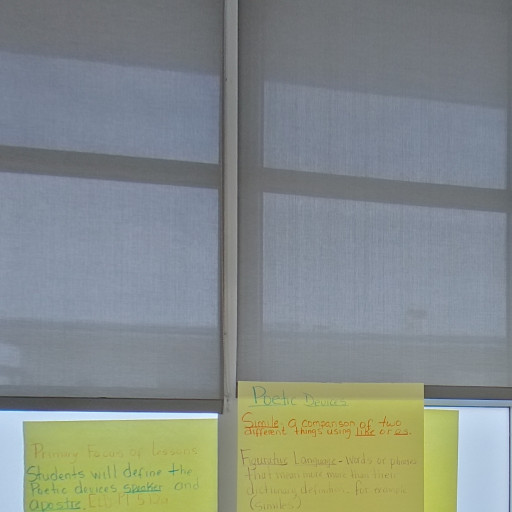 Primary Focus of Lessons
Students will define the
Poetic devices speaker and
apostro.
Poetic Devices
Simile: a comparison of two
different things using like or as.
Figurative Language - words or phrases
that more than their
dictionary definition. For example
(similes)